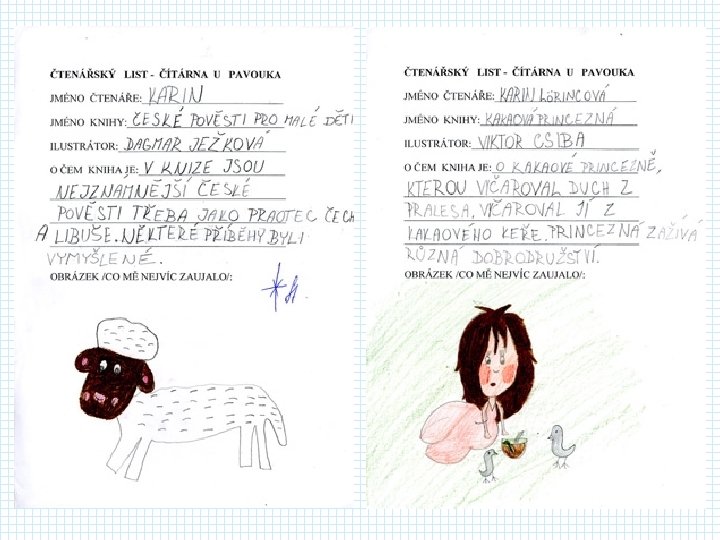 ČTENÁŘSKÝ LIST - ČÍTÁRNA U PAVOUKA
JMÉNO ČTENÁŘE: KARIN
JMÉNO KNIHY: ČESKÉ POVĚSTI PRO MALÉ DĚTI
ILUSTRÁTOR: DAGMAR JEŽKOVÁ
O ČEM KNIHA JE: V KNIZE JSOU
NEJZNAMNĚJŠÍ ČESKÉ
POVĚSTI TŘEBA JAKO PRAOTEC ČECH
A LIBUŠE. NĚKTERÉ PŘÍBĚHY BYLI
VYMYŠLENÉ.
OBRÁZEK /CO MĚ NEJVÍC ZAUJALO/:
ČTENÁŘSKÝ LIST - ČÍTÁRNA U PAVOUKA
JMÉNO ČTENÁŘE: KARIN LÖRINCOVÁ
JMÉNO KNIHY: KAKAOVÁ PRINCEZNÁ
ILUSTRÁTOR: VIKTOR CSIBA
O ČEM KNIHA JE: O KAKAOVÉ PRINCEZNĚ,
KTEROU VIČAROVAL DUCH Z
PRALESA, VIČAROVAL JÍ Z
KAKAOVÉHO KEŘE. PRINCEZNÁ ZAŽIVÁ
RŮZNÁ DOBRODRUŽSTVÍ.
OBRÁZEK /CO MĚ NEJVÍC ZAUJALO/: